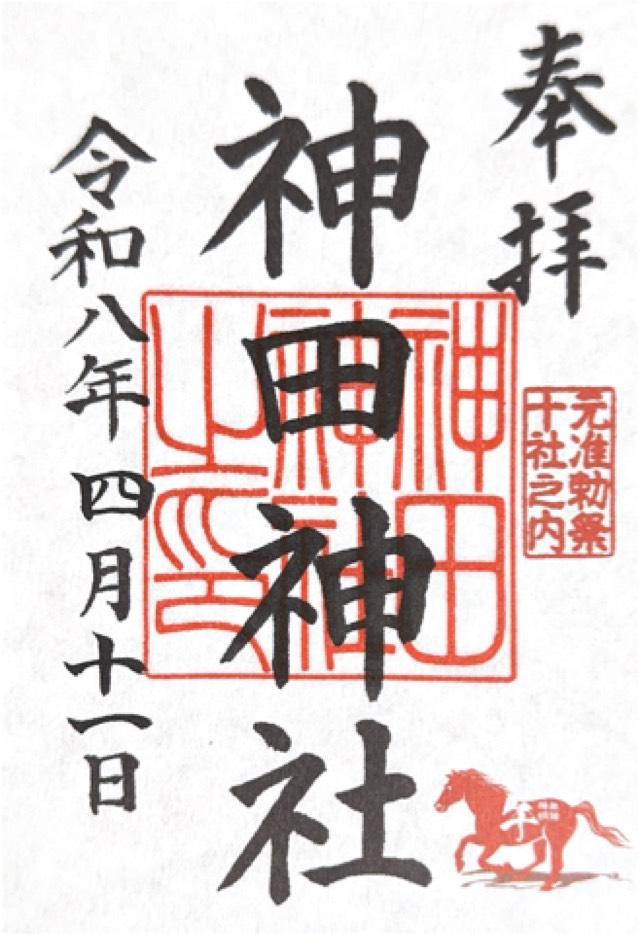 奉拝
元准勅祭
十社之内
神田神社
神田
神社
之印
午
令和八年四月十一日